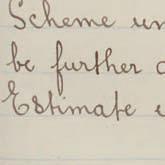 Scheme un
be further
Estimate